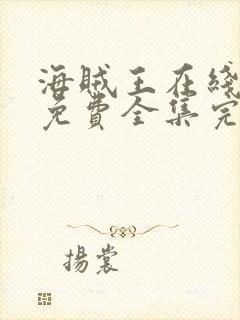 海贼王在綫
免費全集完
揚裳